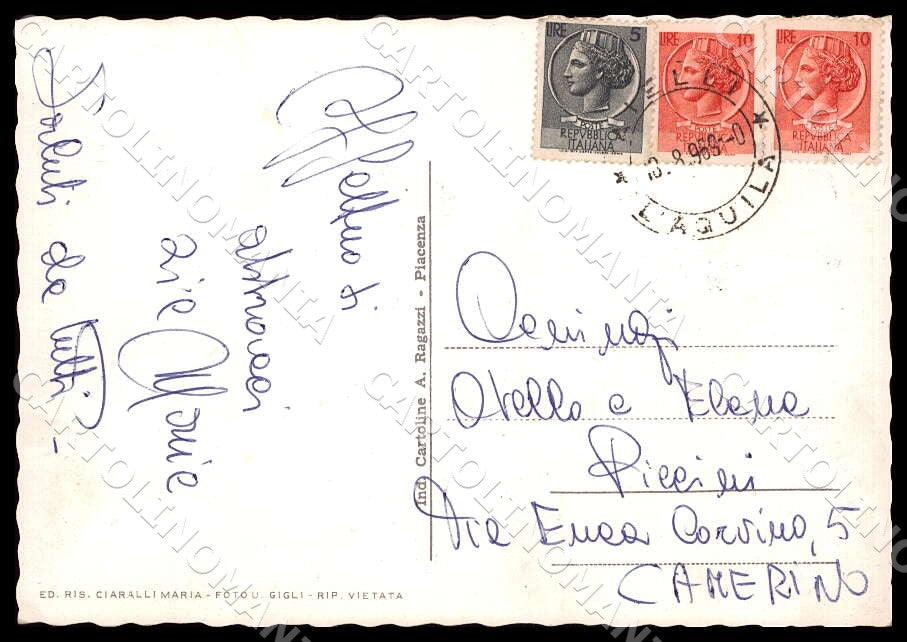 LIRE 5
POSTE
REPVBBLICA
ITALIANA
LIRE 10
POSTE
REPVBBLICA
ITALIANA
LIRE 10
POSTE
REPVBBLICA
ITALIANA
L'AQUILA
Affettuosi
abbracci
zie Marie
Saluti da tutti
Ind. Cartoline A. Ragazzi - Piacenza
Otello e Elena
Piccini
Via Enea Corvino, 5
CAMERINO
ED. RIS. CIARALLI MARIA - FOTO U. GIGLI - RIP. VIETATA
CARTOLINOMANIA